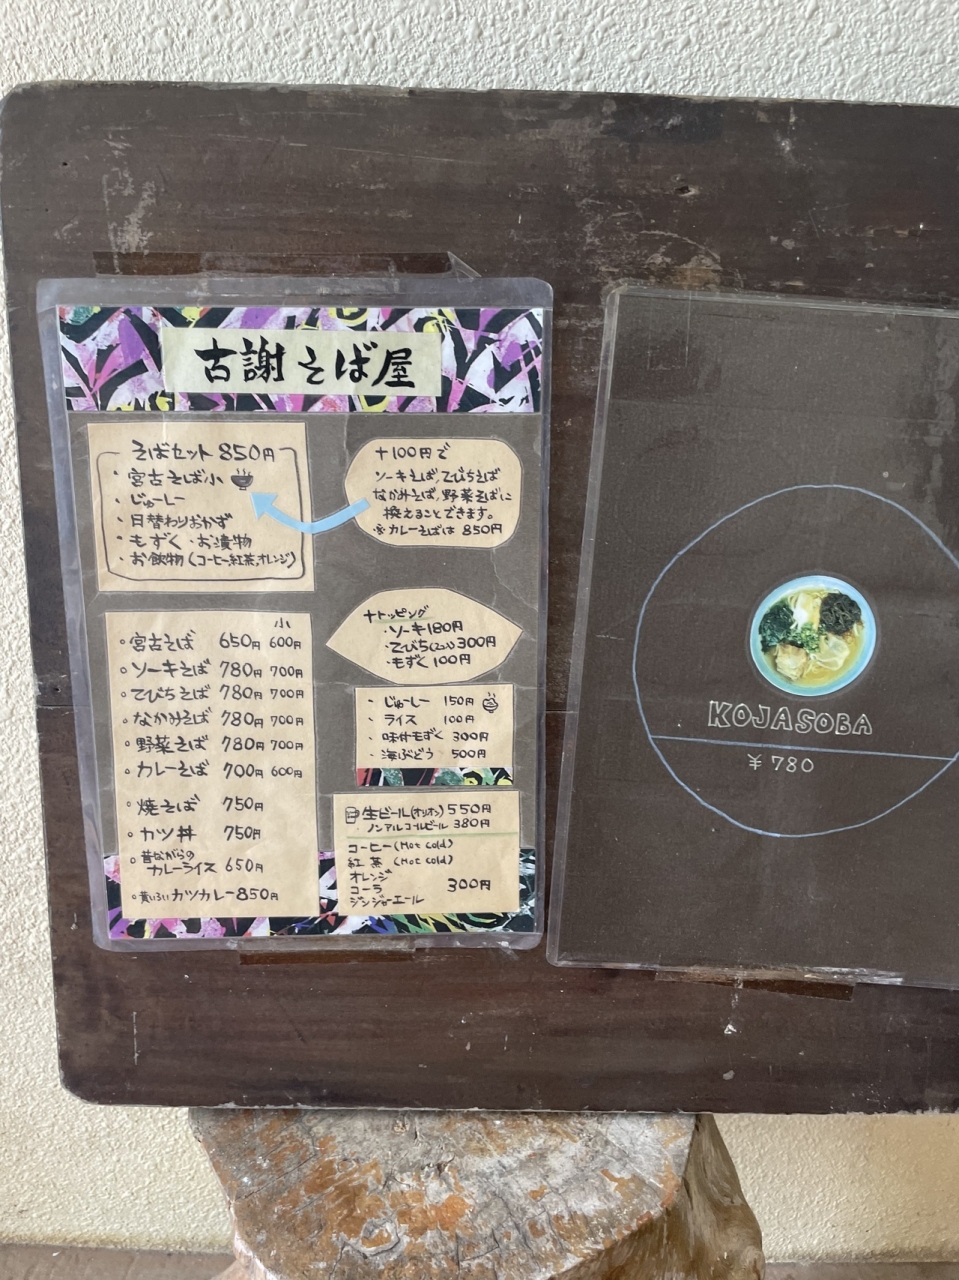 古謝そば屋
そばセット 850円
・宮古そば小
・じゅーしー
・日替わりおかず
・もずく・お漬物
・お飲物(コーヒー紅茶,オレンジ)
+100円で
ソーキそば,てびちそば
なかみそば,野菜そばに
換えることできます。
※カレーそばは 850円
小
○宮古そば 650円 600円
○ソーキそば 780円 700円
○てびちそば 780円 700円
○なかみそば 780円 700円
○野菜そば 780円 700円
○カレーそば 700円 600円
○焼そば 750円
○カツ丼 750円
○昔ながらの
カレーライス 650円
○黄いろいカツカレー 850円
+トッピング
・ソーキ 180円
・てびち 300円
・もずく 100円
・じゅーしー 150円
・ライス 100円
・味付もずく 300円
・海ぶどう 500円
生ビール(オリオン) 550円
ノンアルコールビール 380円
コーヒー(Hot cold)
紅茶(Hot cold)
オレンジ
コーラ 300円
ジンジャーエール
KOJASOBA
¥780